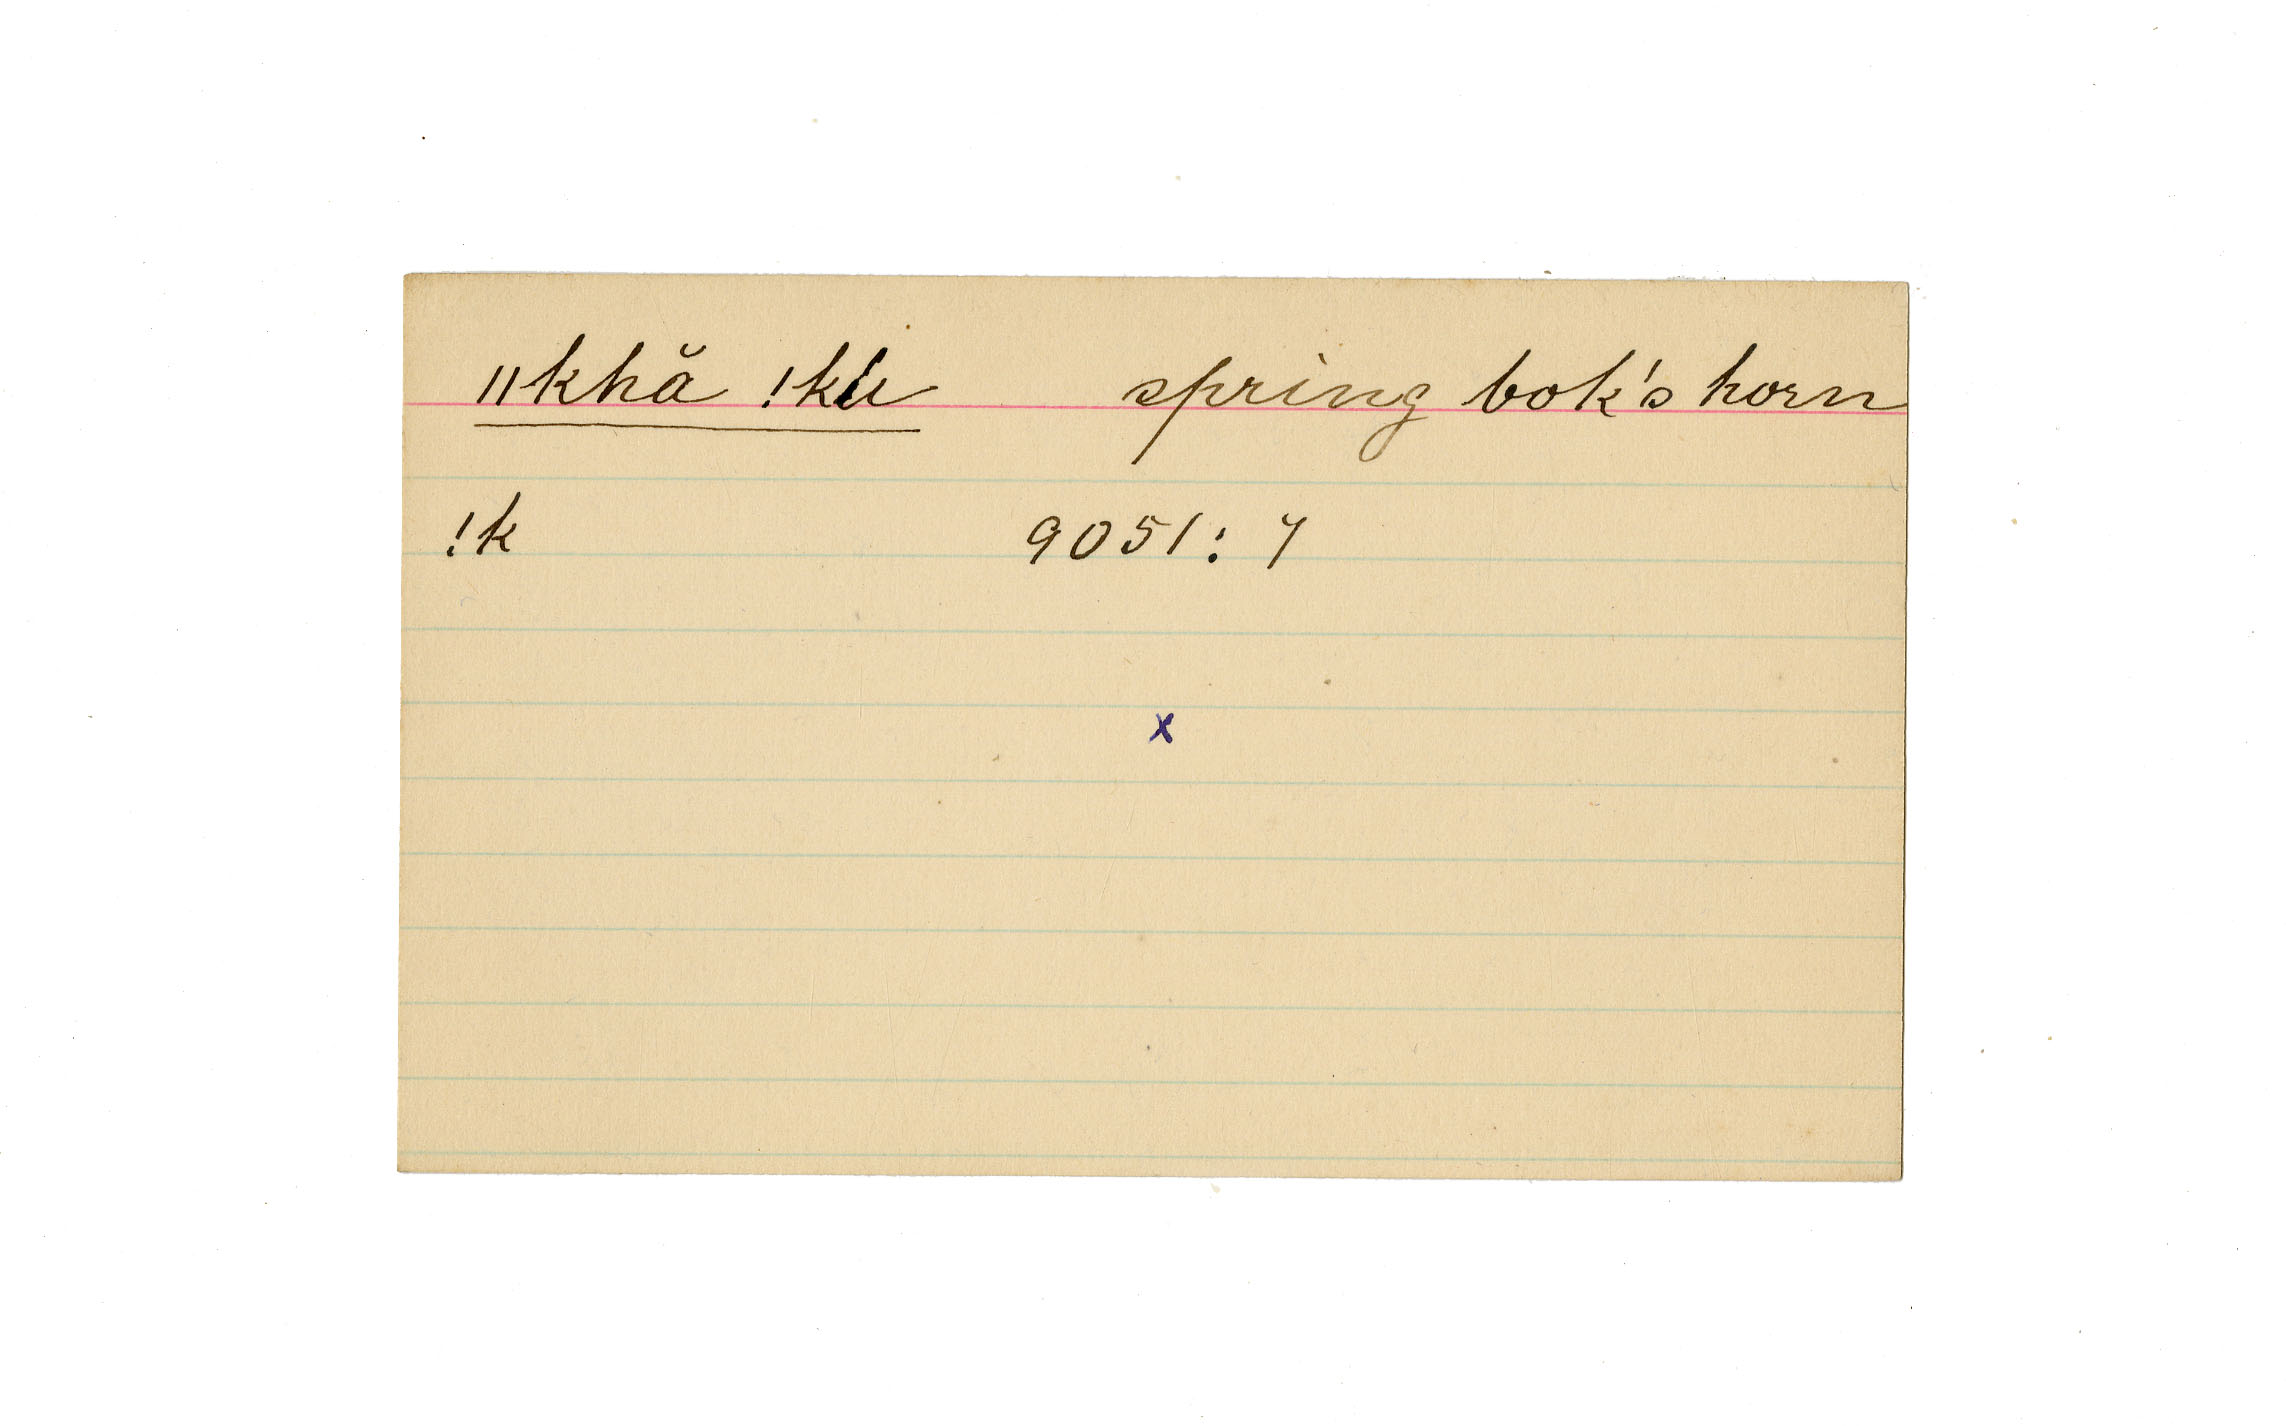 ǁkhă !ku spring bok's horn
!k 9051: 7
x